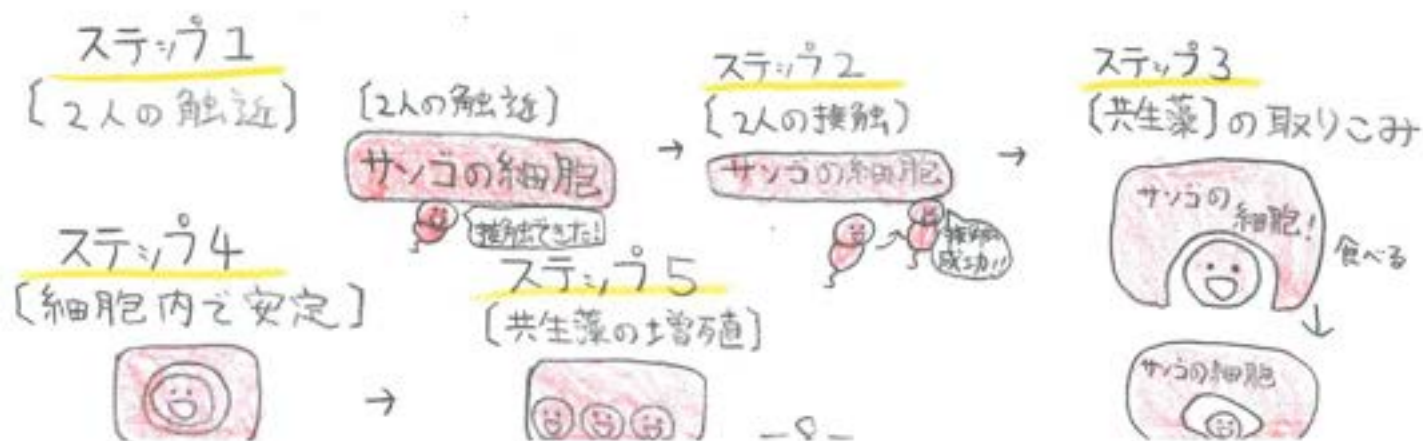 ステップ1
[2人の触近]
[2人の触近]
サンゴの細胞
接触できた!
→
ステップ2
[2人の接触]
サンゴの細胞
接触
成功!!
→
ステップ3
[共生藻]の取りこみ
サンゴの
細胞!
食べる
↓
サンゴの細胞
ステップ4
[細胞内で安定]
→
ステップ5
[共生藻の増殖]
-8-